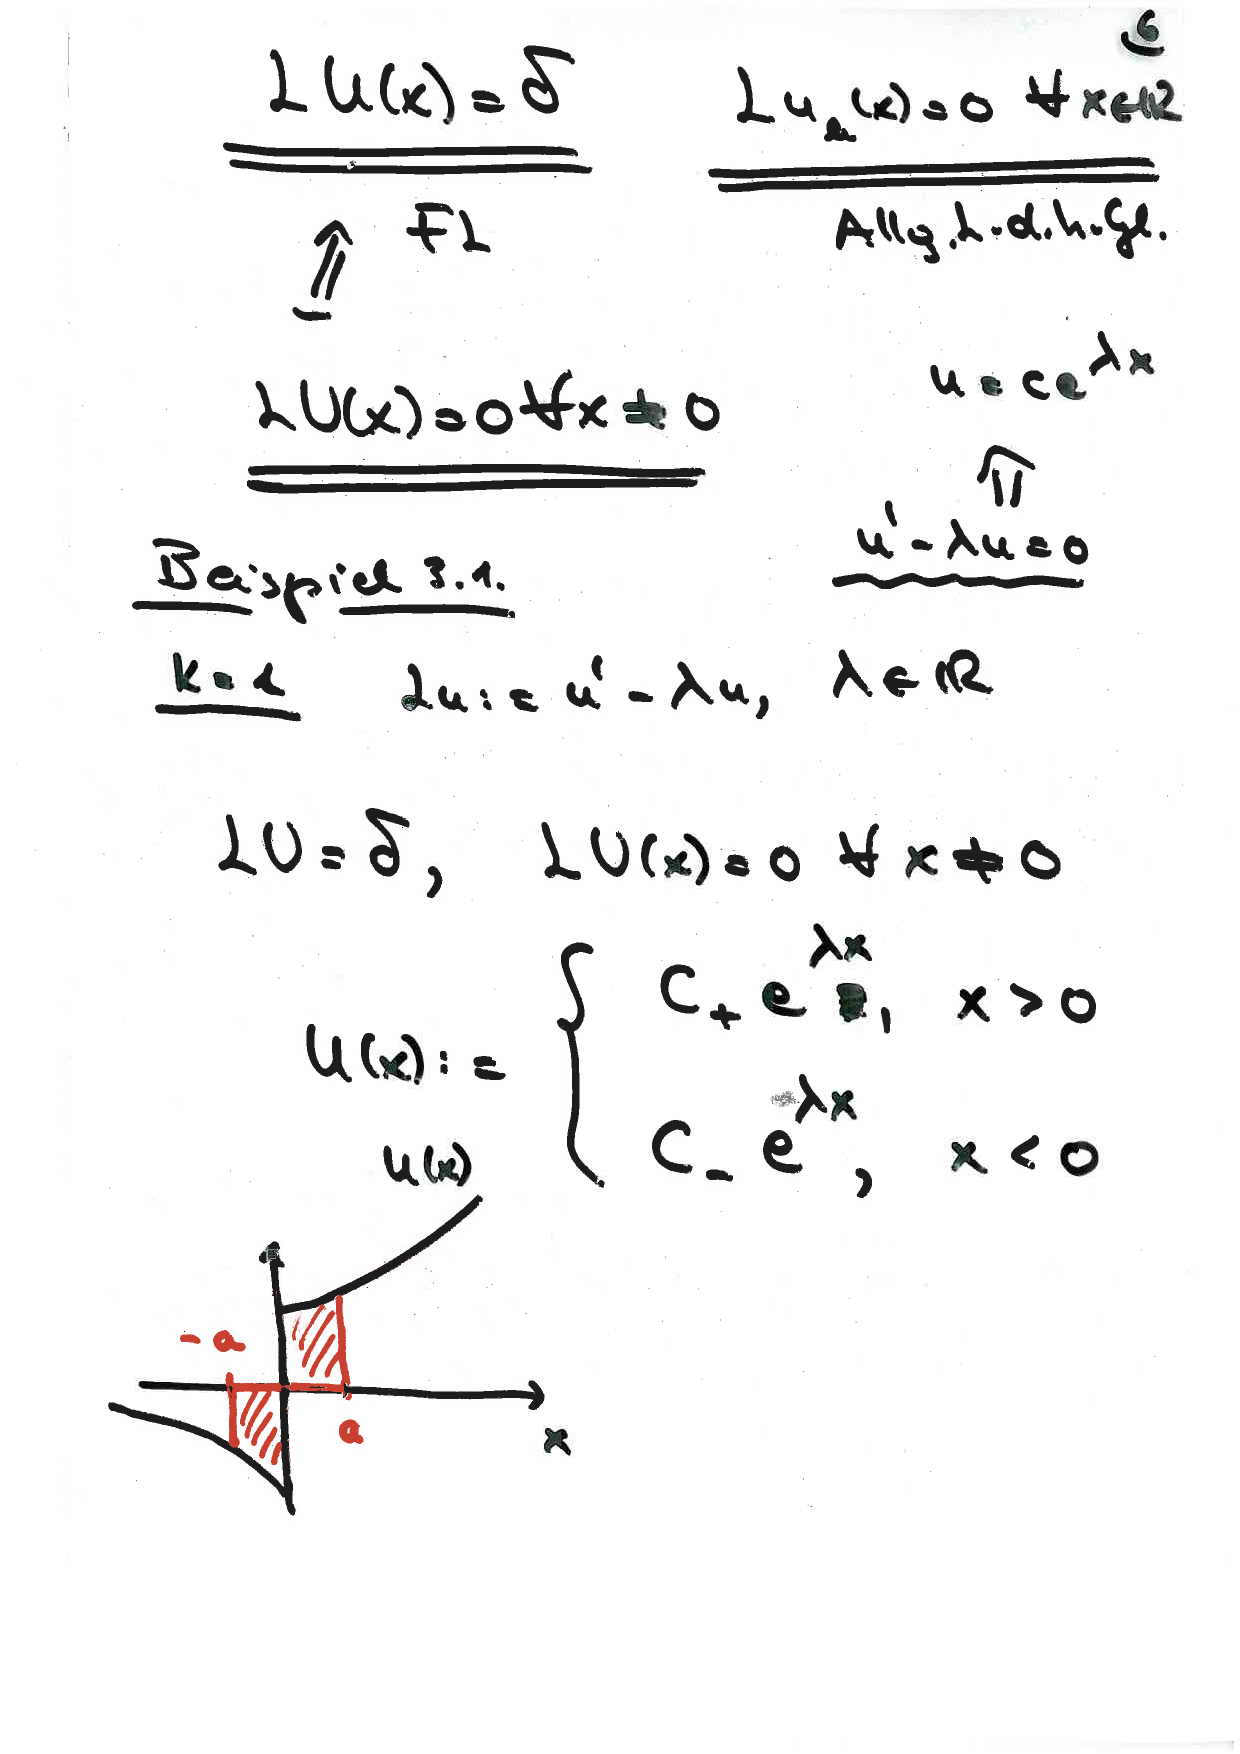 6
LU(x) = δ    Lu_h(x) = 0 ∀ x ∈ ℝ
⇑ FL    Allg. L. d. h. Gl.
LU(x) = 0 ∀ x ≠ 0    u = c e^{λx}
⇑
u' - λu = 0
Beispiel 3.1.
k = 1    Lu := u' - λu, λ ∈ ℝ
LU = δ,    LU(x) = 0 ∀ x ≠ 0
U(x) := { C_+ e^{λx}, x > 0
C_- e^{λx}, x < 0
U(x)
-a
a
x